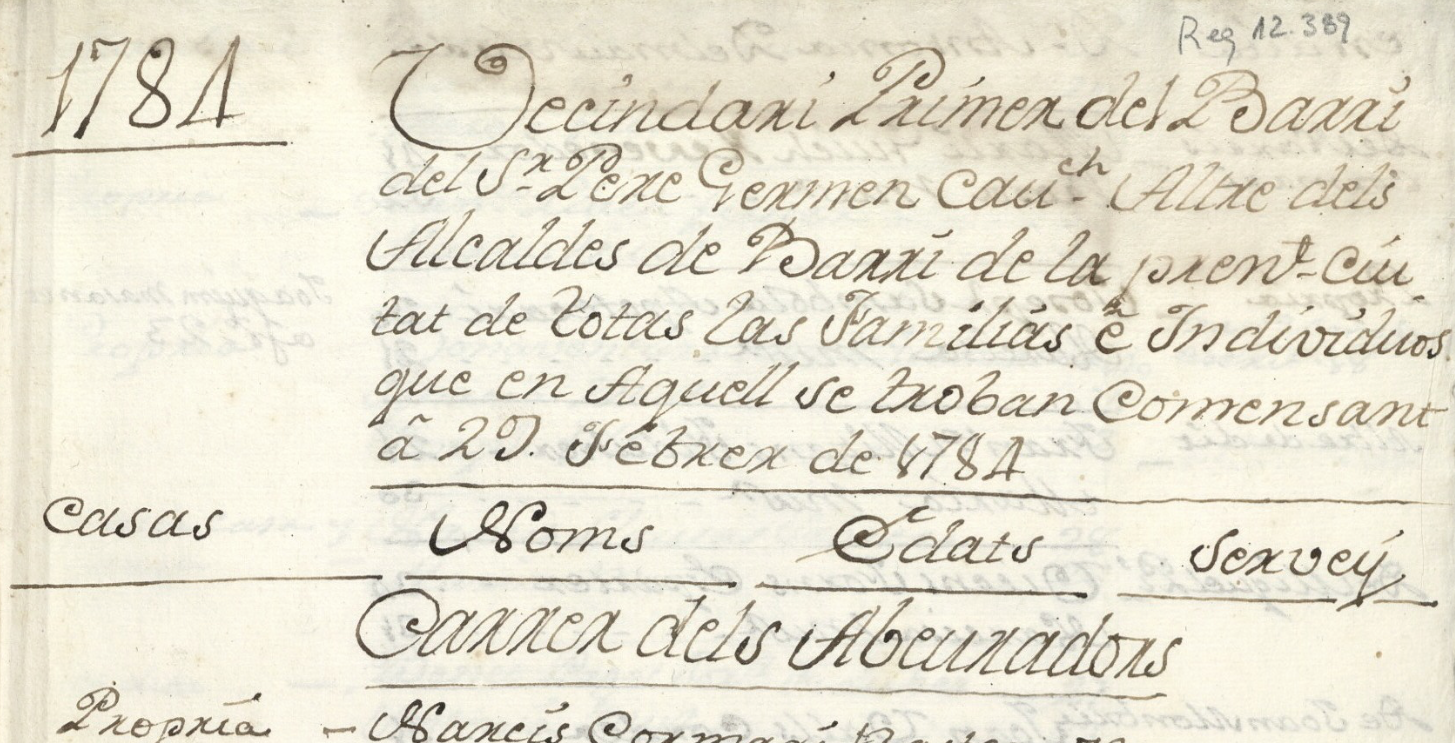 Reg 12.389
1784
Vecindari Primer del Barri
del Sr. Pere Germen Cauch. Altre dels
Alcaldes de Barri de la prent. Ciu
tat de totas las Familias è Individuos
que en Aquell se troban Comensant
â 27. Febrer de 1784
Casas Noms Edats Servey
Carrer dels Abeuradors
Propria - Narcis